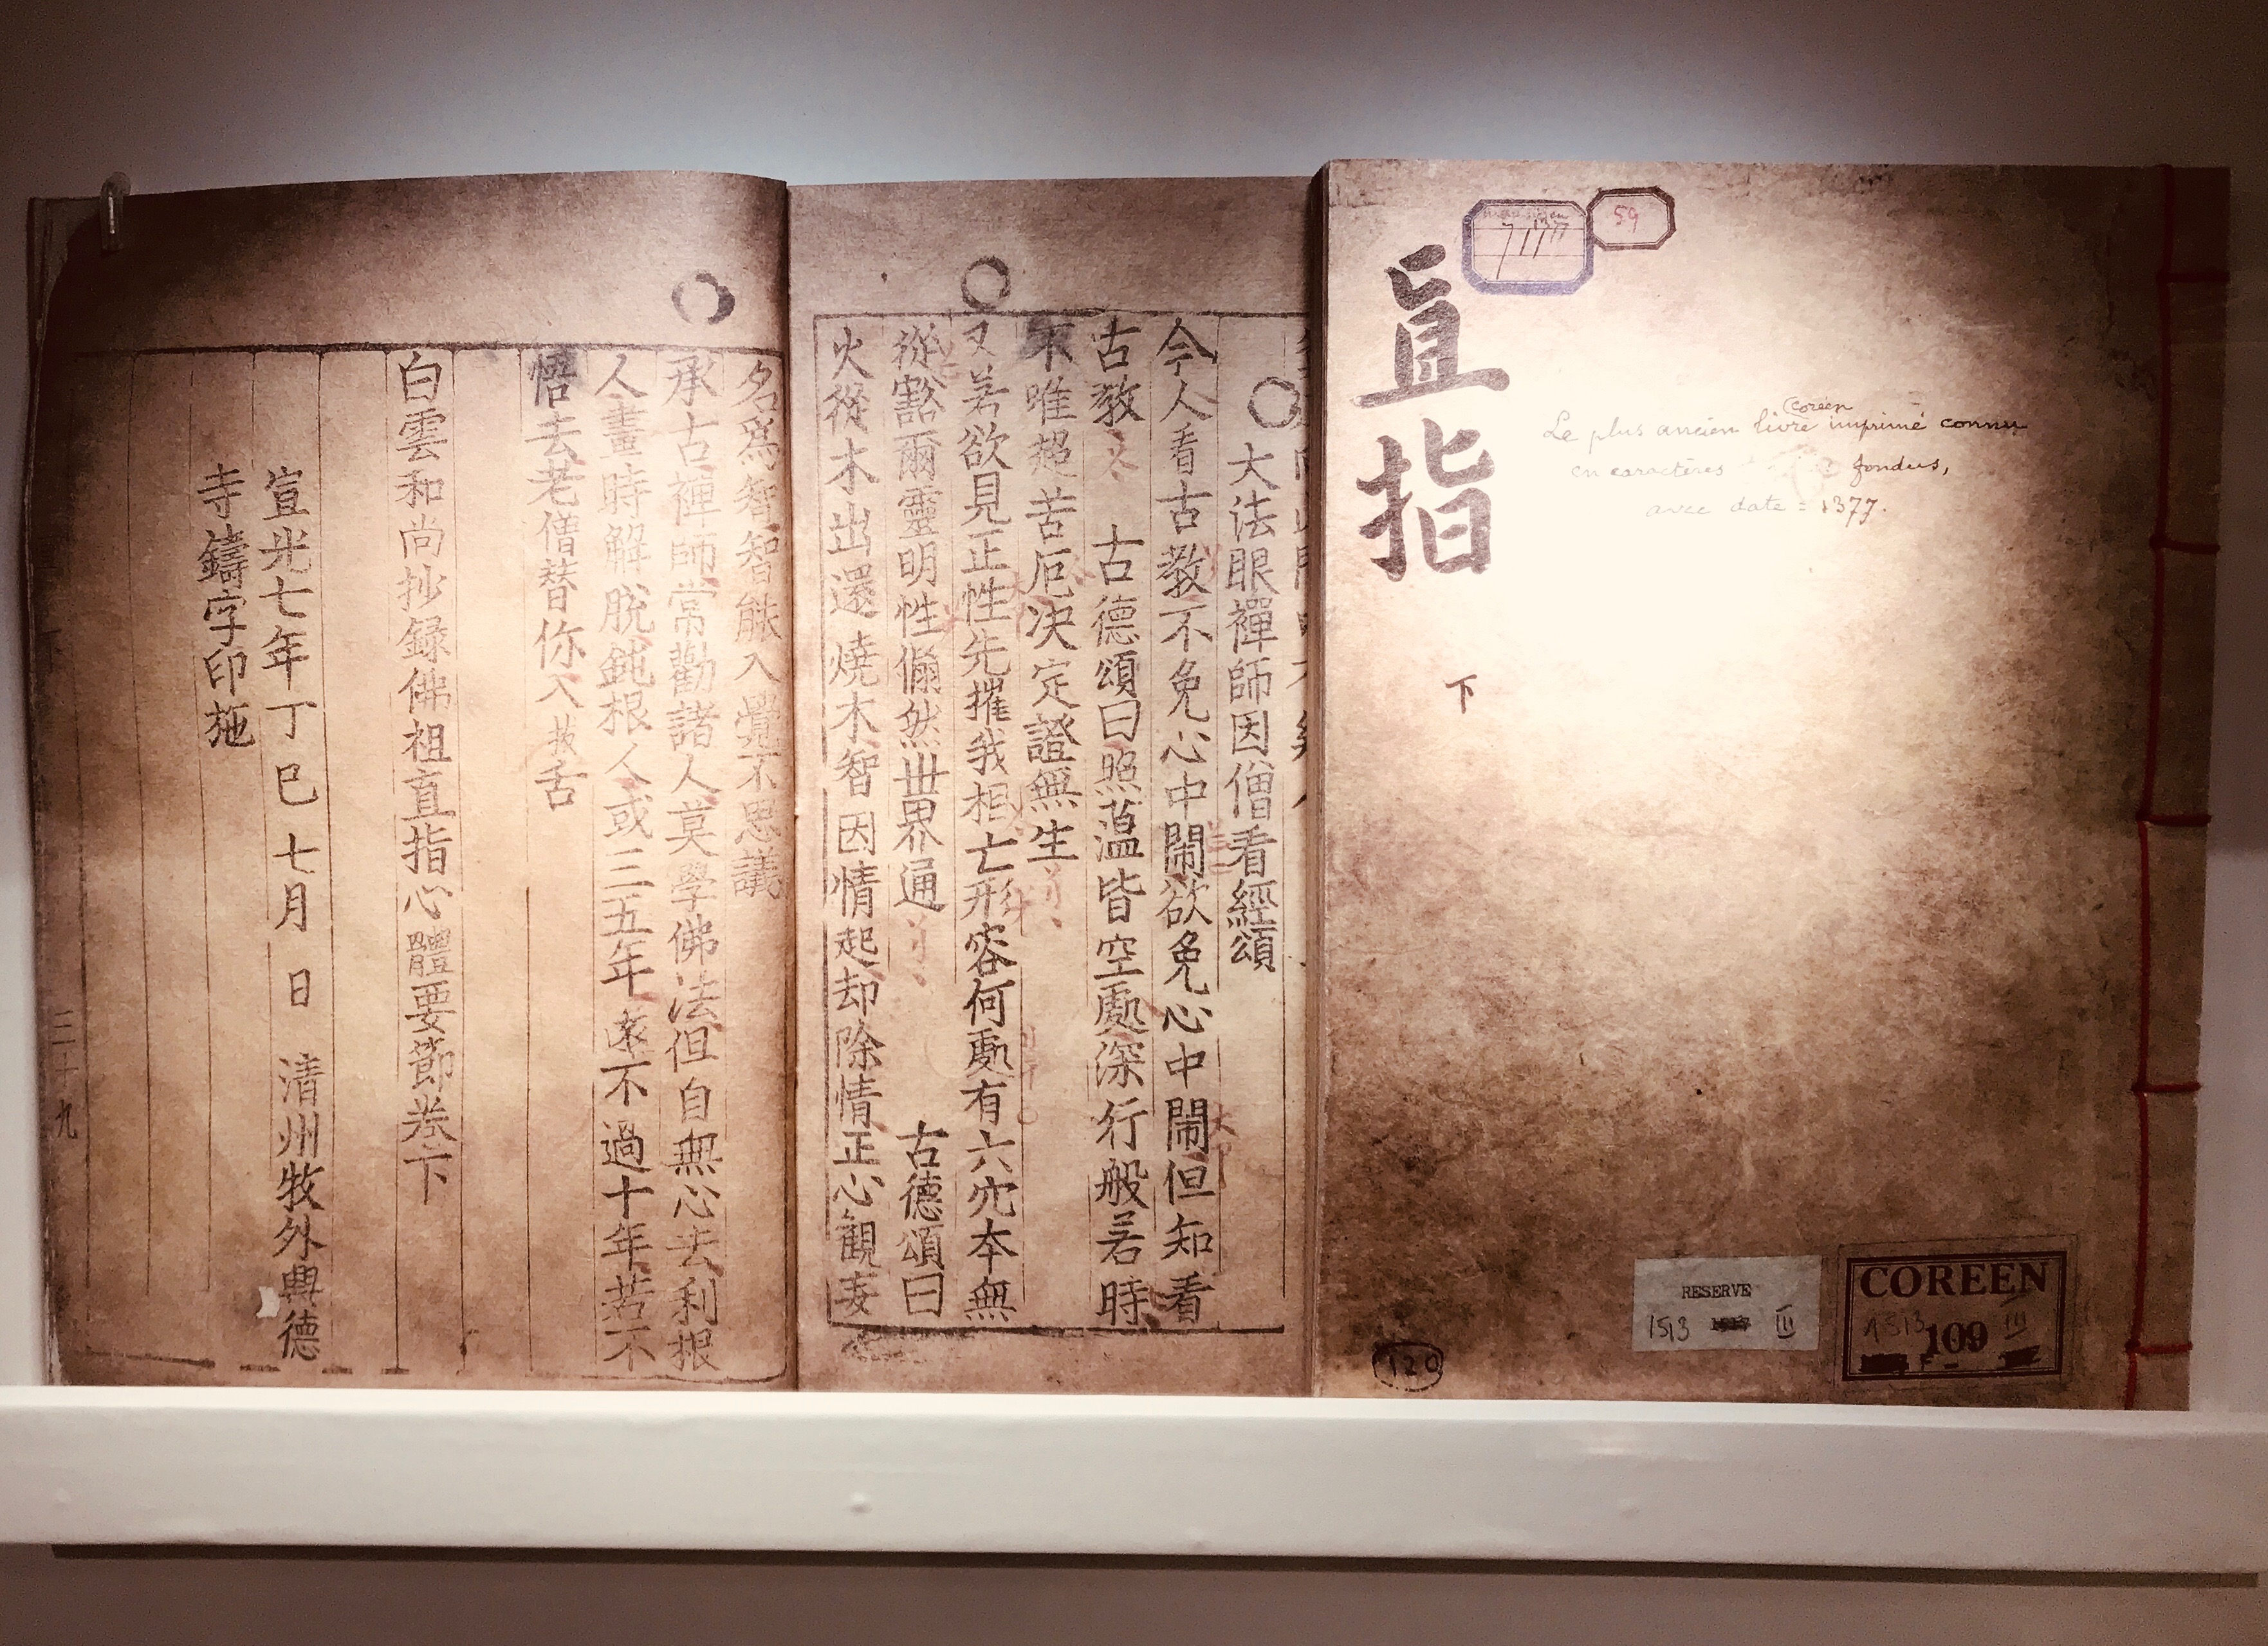 直指
下
59
711
Le plus ancien livre coréen imprimé connu
en caractères fondus,
avec date = 1377.
RESERVE
1513 III
COREEN
109
1513 III
120
大法眼禪師因僧看經頌
今人看古教不免心中鬧欲免心中鬧但知看
古教 古德頌曰照蘊皆空處深行般若時
不唯超苦厄決定證無生
又若欲見正性先摧我相亡形容何處有六穴本無
從豁爾靈明性翛然世界通 古德頌曰
火從木出還燒木智因情起却除情正心觀妄
名爲智智能入覺不思議
承古禪師常勸諸人莫學佛法但自無心去利根
人晝時解脫鈍根人或三五年遠不過十年若不
悟去老僧替你入拔舌
白雲和尚抄錄佛祖直指心體要節卷下
宣光七年丁巳七月 日 清州牧外興德
寺鑄字印施
三十九